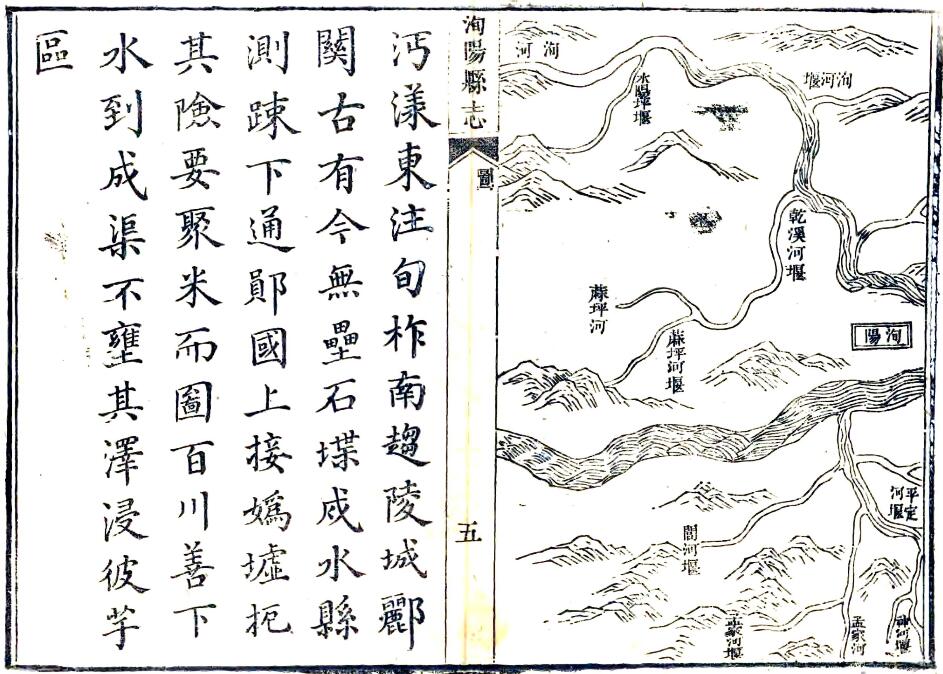 洵河堰
乾溪河堰
洵陽
平定河堰
洵河
蔴坪河堰
蔴坪河
閭河堰
神河堰
孟家河
孟家河堰
洵陽縣志
圖
五
沔漾東注旬柞南趨陵城酈
關古有今無壘石堞戍水縣
測踈下通鄖國上接嬀墟扼
其險要聚米而圖百川善下
水到成渠不壅其澤浸彼芋
區